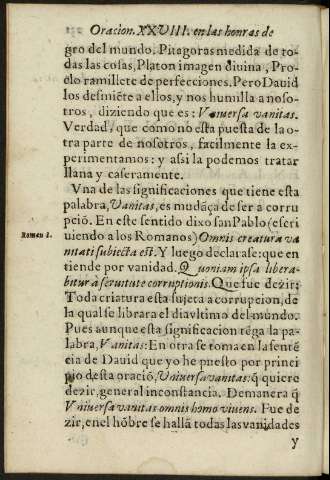 Oracion. XXVIII. en las honras de
gro del mundo. Pitagoras medida de to-
das las cosas, Platon imagen diuina, Pro-
clo ramillete de perfecciones. Pero Dauid
los desmiẽte a ellos, y nos humilla a noso-
tros, diziendo que es: Vniuersa vanitas.
Verdad, que como no esta puesta de la o-
tra parte de nosotros, facilmente la ex-
perimentamos: y assi la podemos tratar
llana y caseramente.
Vna de las significaciones que tiene esta
palabra, Vanitas, es mudãça de ser a corru
pciõ. En este sentido dixo san Pablo (escri
uiendo a los Romanos) Omnis creatura va
Roman 8.
nitati subiecta est. Y luego declarase: que en
tiende por vanidad. Quoniam ipsa libera-
bitur à seruitute corruptionis. Que fue dezir:
Toda criatura esta sujeta a corrupcion, de
la qual se librara el dia vltimo del mũndo.
Pues aunque esta significacion tẽga la pa-
labra, Vanitas: En otra se toma en la sentẽ
cia de Dauid que yo he puesto por princi
pio desta oraciõ, Vniuersa vanitas: q̃ quiere
dezir, general inconstancia. De manera q̃
Vniuersa vanitas omnis homo viuens. Fue de
zir, en el hõbre se hallã todas las vanidades
y